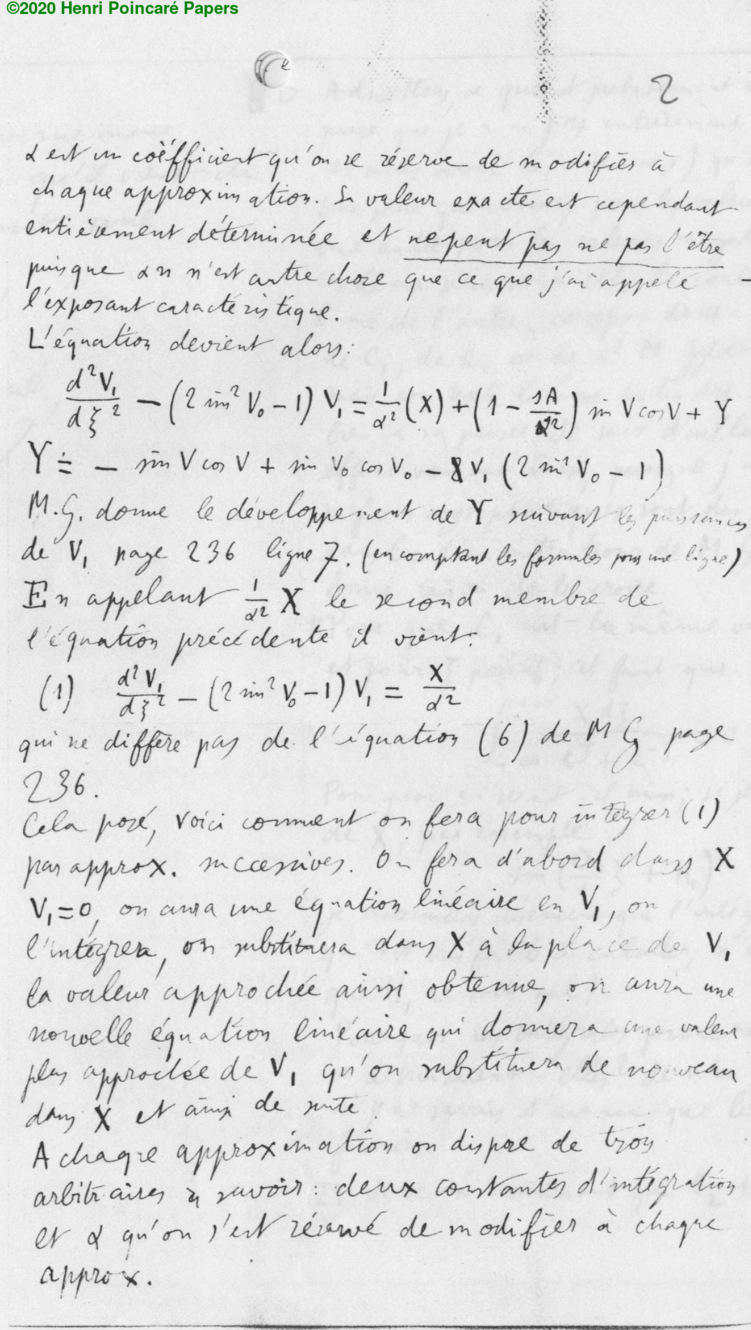 ©2020 Henri Poincaré Papers
2
α est un coëfficient qu'on se réserve de modifier à
chaque approximation. Sa valeur exacte est cependant
entièrement déterminée et ne peut pas ne pas l'être
puisque αn n'est autre chose que ce que j'ai appelé
l'exposant caractéristique.
L'équation devient alors:
d²V₁/dξ² − (2 sin² V₀ − 1) V₁ = 1/α² (X) + (1 − sA/α²) sin V cos V + Y
Y = − sin V cos V + sin V₀ cos V₀ − V₁ (2 sin² V₀ − 1)
M. G. donne le développement de Y suivant les puissances
de V₁ page 236 ligne 7. (en comptant les formules pour une ligne)
En appelant 1/α² X le second membre de
l'équation précédente il vient:
(1) d²V₁/dξ² − (2 sin² V₀ − 1) V₁ = X/α²
qui ne diffère pas de l'équation (6) de M G page
236.
Cela posé, voici comment on fera pour intégrer (1)
par approx. successives. On fera d'abord dans X
V₁=0, on aura une équation linéaire en V₁, on
l'intégrera, on substituera dans X à la place de V₁
la valeur approchée ainsi obtenue, on aura une
nouvelle équation linéaire qui donnera une valeur
plus approchée de V₁ qu'on substituera de nouveau
dans X et ainsi de suite.
A chaque approximation on dispose de trois
arbitraires à savoir: deux constantes d'intégration
et α qu'on s'est réservé de modifier à chaque
approx.